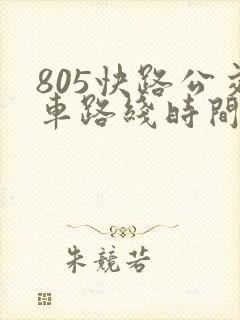 805快路公交
車路綫時間
朱競若